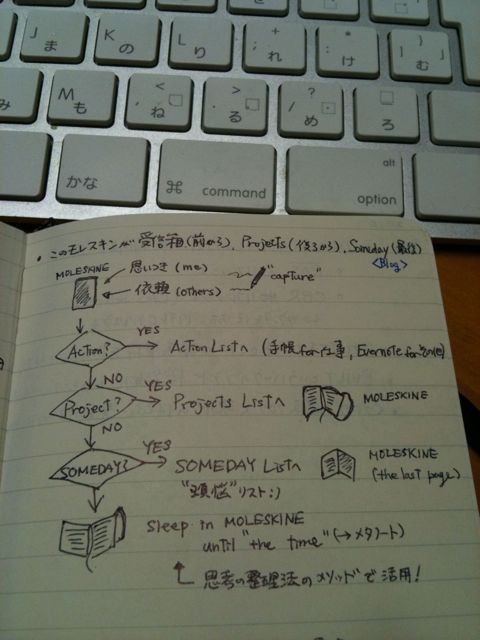 J ま
K の
L り
+ ; れ
* : け
} ] 」 む
み
M も
< , 、 ね
> . 。 る
? / ・ め
_ ろ
かな
⌘ command
alt
option
・このモレスキンが受信箱(前から), Projects(後ろから), Someday(最後)
<Blog>
MOLESKINE
思いつき(me)
依頼(others)
"capture"
Action?
YES
Action Listへ (手帳for仕事, Evernote for その他)
NO
Project?
YES
Projects Listへ
MOLESKINE
NO
SOMEDAY?
YES
SOMEDAY Listへ
"煩悩"リスト:)
MOLESKINE
(the last page)
Sleep in MOLESKINE
until "the time" (→メタノート)
思考の整理法のメソッドで活用!